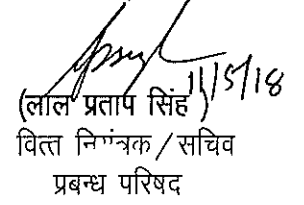 11/5/18
(लाल प्रताप सिंह)
वित्त नियंत्रक/सचिव
प्रबन्ध परिषद